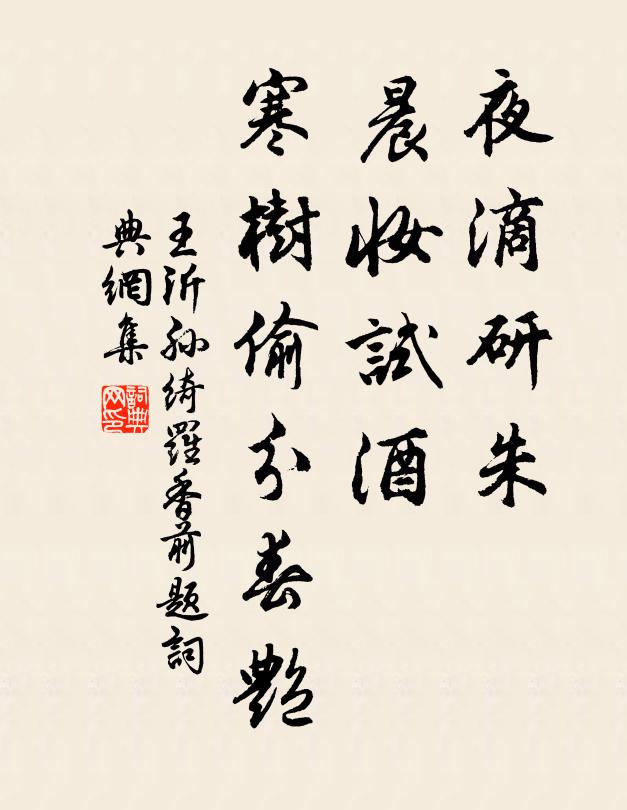 夜滴研朱
晨妝試酒
寒樹偷分春艷
王沂孫綺羅香前題詞
典網集
詞典
网印